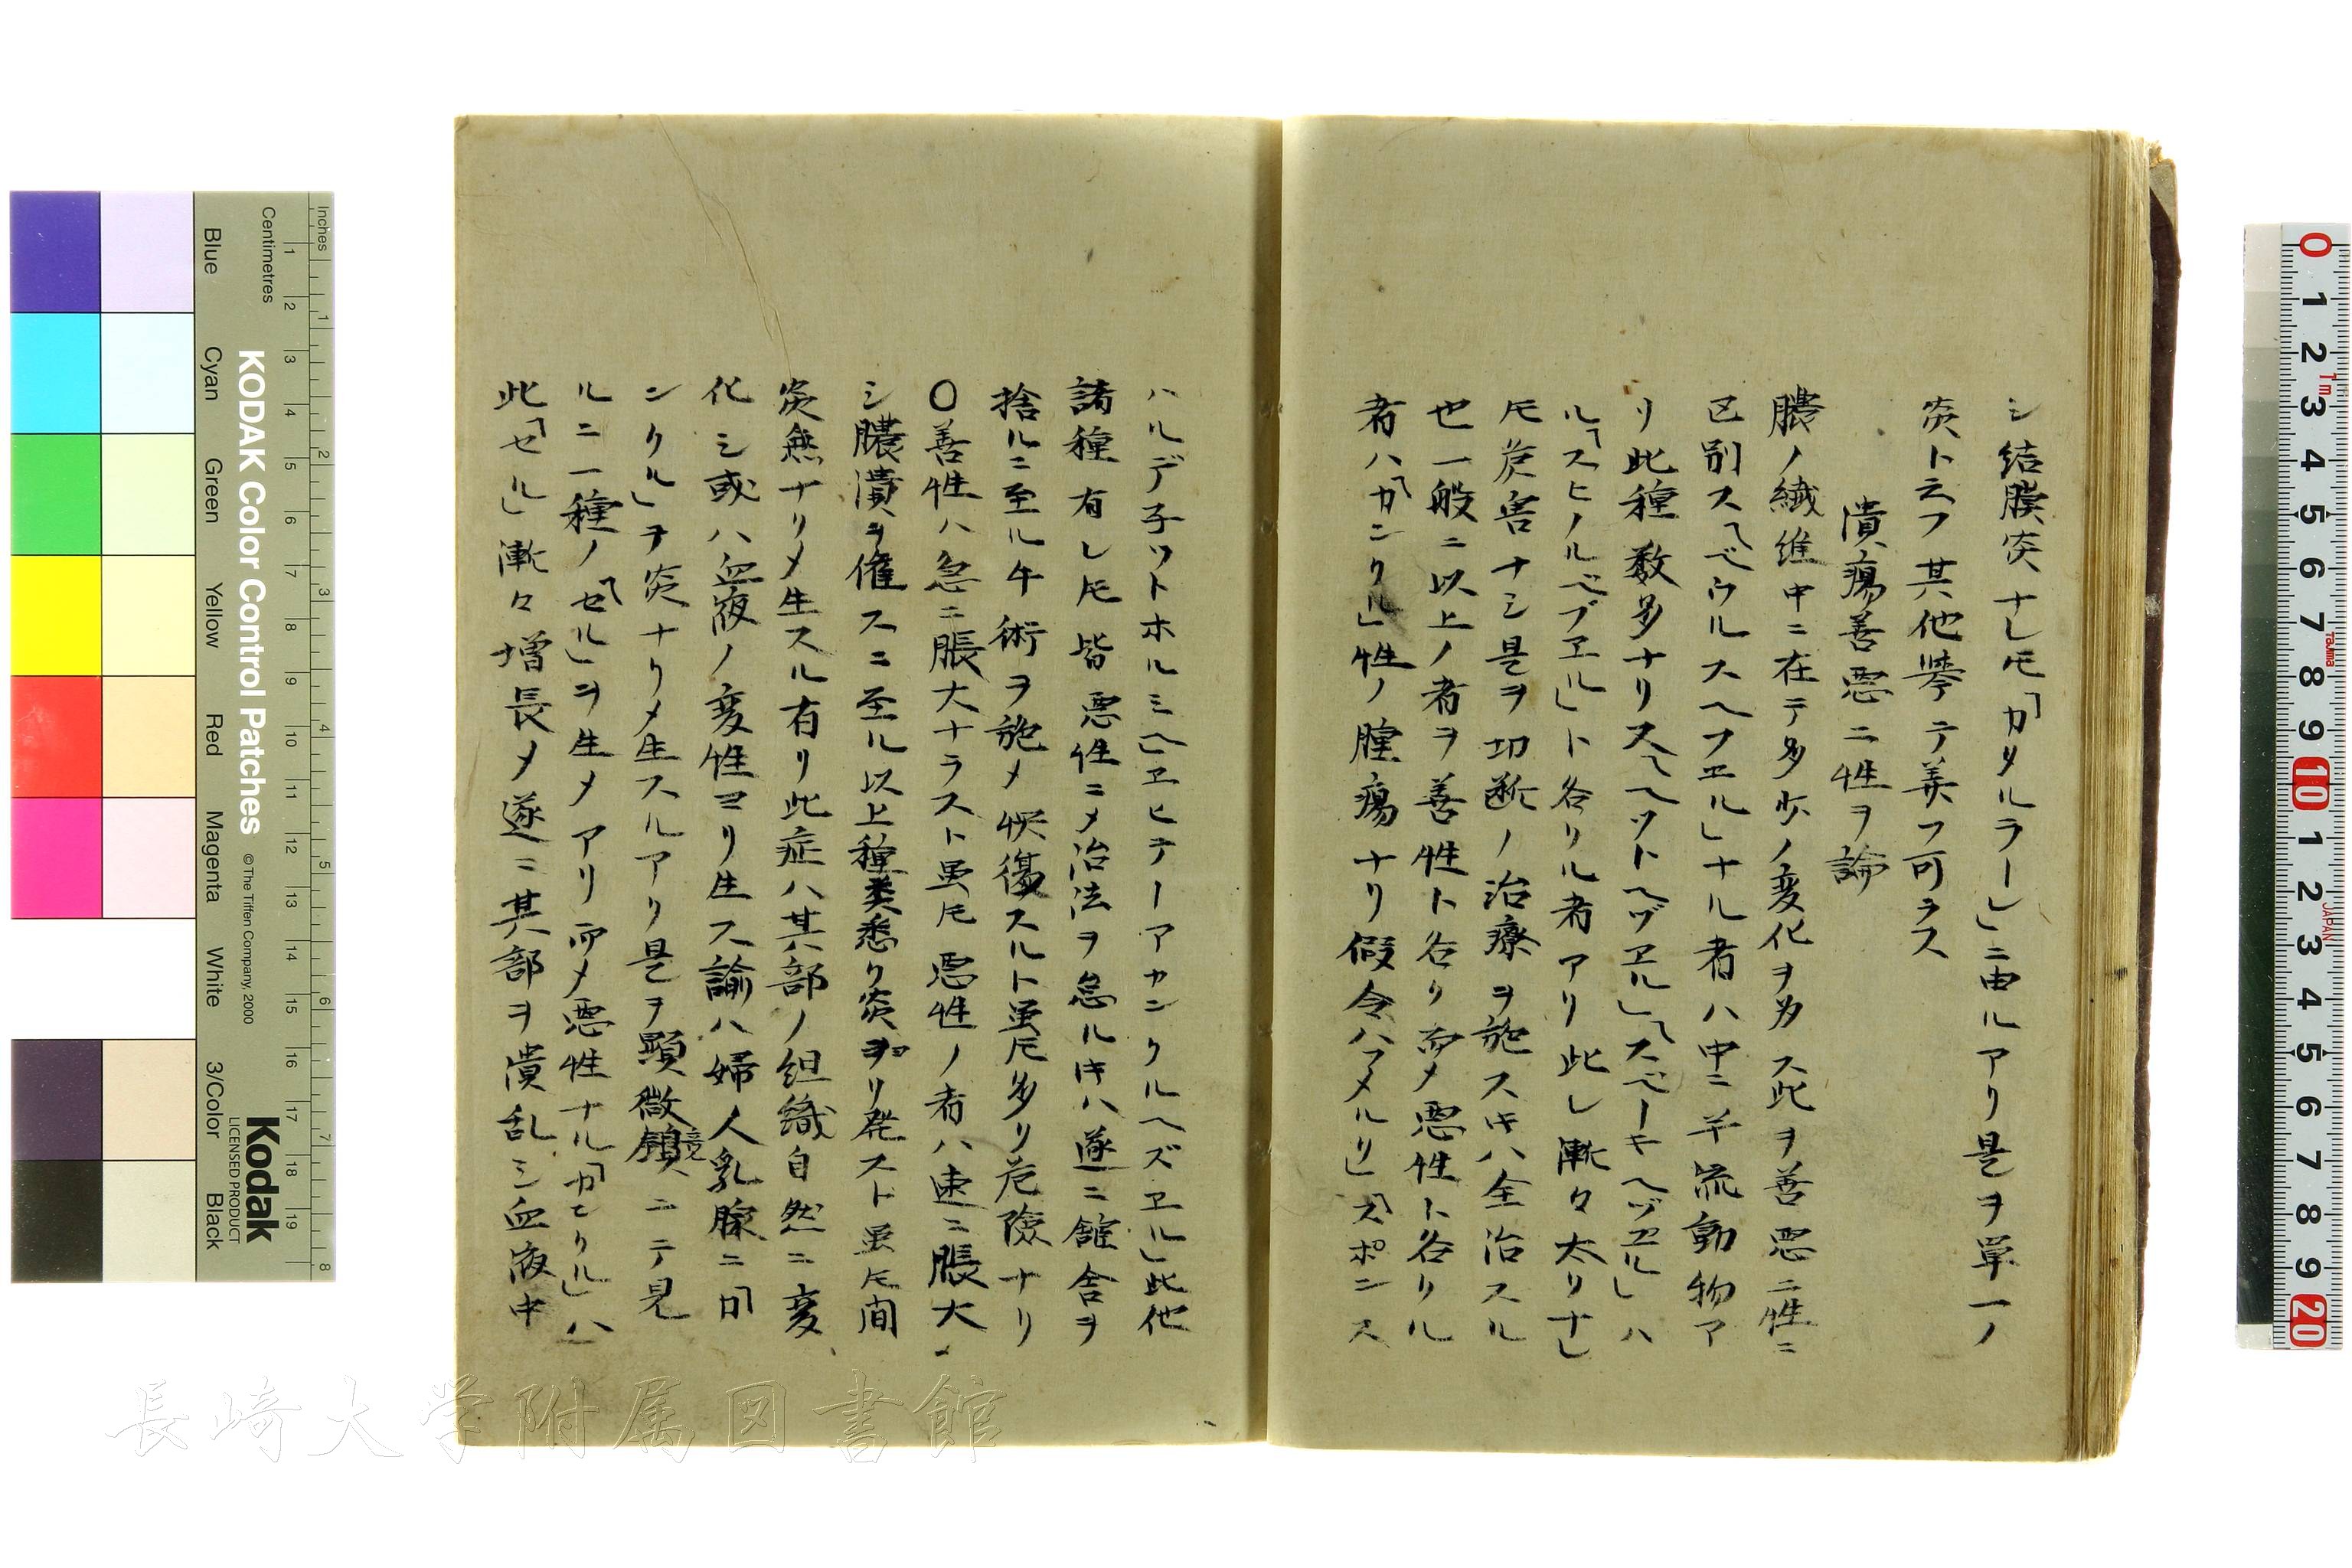 シ結膜炎ナレ𪜈「カタルラーレ」ニ由ルアリ是ヲ単一ノ
炎ト云フ其他挙テ算フ可ラス
潰瘍善悪二性ヲ論
膿ノ繊維中ニ在テ多少ノ変化ヲ為ス此ヲ善悪二性ニ
区別ス「ベウルスヘフエル」ナル者ハ中ニ半流動物ア
リ此種数多ナリ「スヘツトヘヅエル」「スペーキヘヅエル」ハ
ル「スヒノルベブエル」ト名クル者アリ此レ漸々太リナレ
𪜈危害ナシ是ヲ切断ノ治療ヲ施スキハ全治スル
也一般ニ以上ノ者ヲ善性ト名ク而〆悪性ト名クル
者ハ「カンクル」性ノ腫瘍ナリ假令ハ「フメルリ」「スポンス
ハルデ子ツトホルミヘ」「エヒテーアカンクルヘズエル」此他
諸種有レ𪜈皆悪性ニ〆治法ヲ怠ルキハ遂ニ館舎ヲ
捨ルニ至ル午術ヲ施〆快復スルト虽𪜈多ク危険ナリ
〇善性ハ急ニ脹大ナラスト虽𪜈悪性ノ者ハ速ニ脹大
シ膿潰ヲ催スニ至ル以上種类悉ク炎ヨリ発スト虽𪜈間
炎無ナリ〆生スル有リ此症ハ其部ノ組織自然ニ変
化シ或ハ血液ノ変性ヨリ生ス諭ハ婦人乳腺ニ「カ
ンクル」ヲ炎ナク〆生スルアリ是ヲ顕微鏡ニテ見
ルニ一種ノ「セル」ヲ生〆アリ而〆悪性ナル「カンクル」ハ
此「セル」漸々増長〆遂ニ其部ヲ潰乱シ血液中
Inches
Centimetres
KODAK Color Control Patches
© The Tiffen Company, 2000
Kodak
LICENSED PRODUCT
Blue
Cyan
Green
Yellow
Red
Magenta
White
3/Color
Black
長崎大学附属図書館